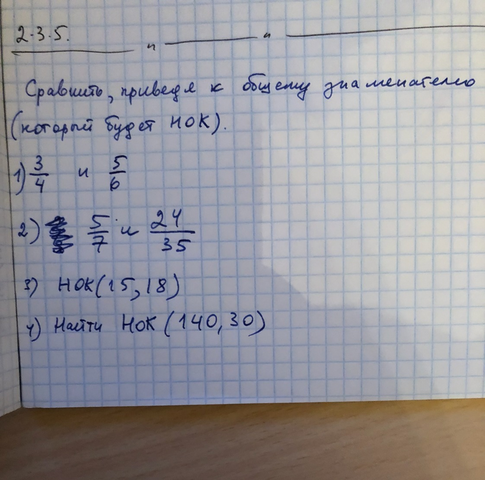 2·3·5.
" "
Сравнить, приведя к общему знаменателю
(который будет НОК).
1) 3/4 и 5/6
2) 5/7 и 24/35
3) НОК(15,18)
4) Найти НОК(140,30)